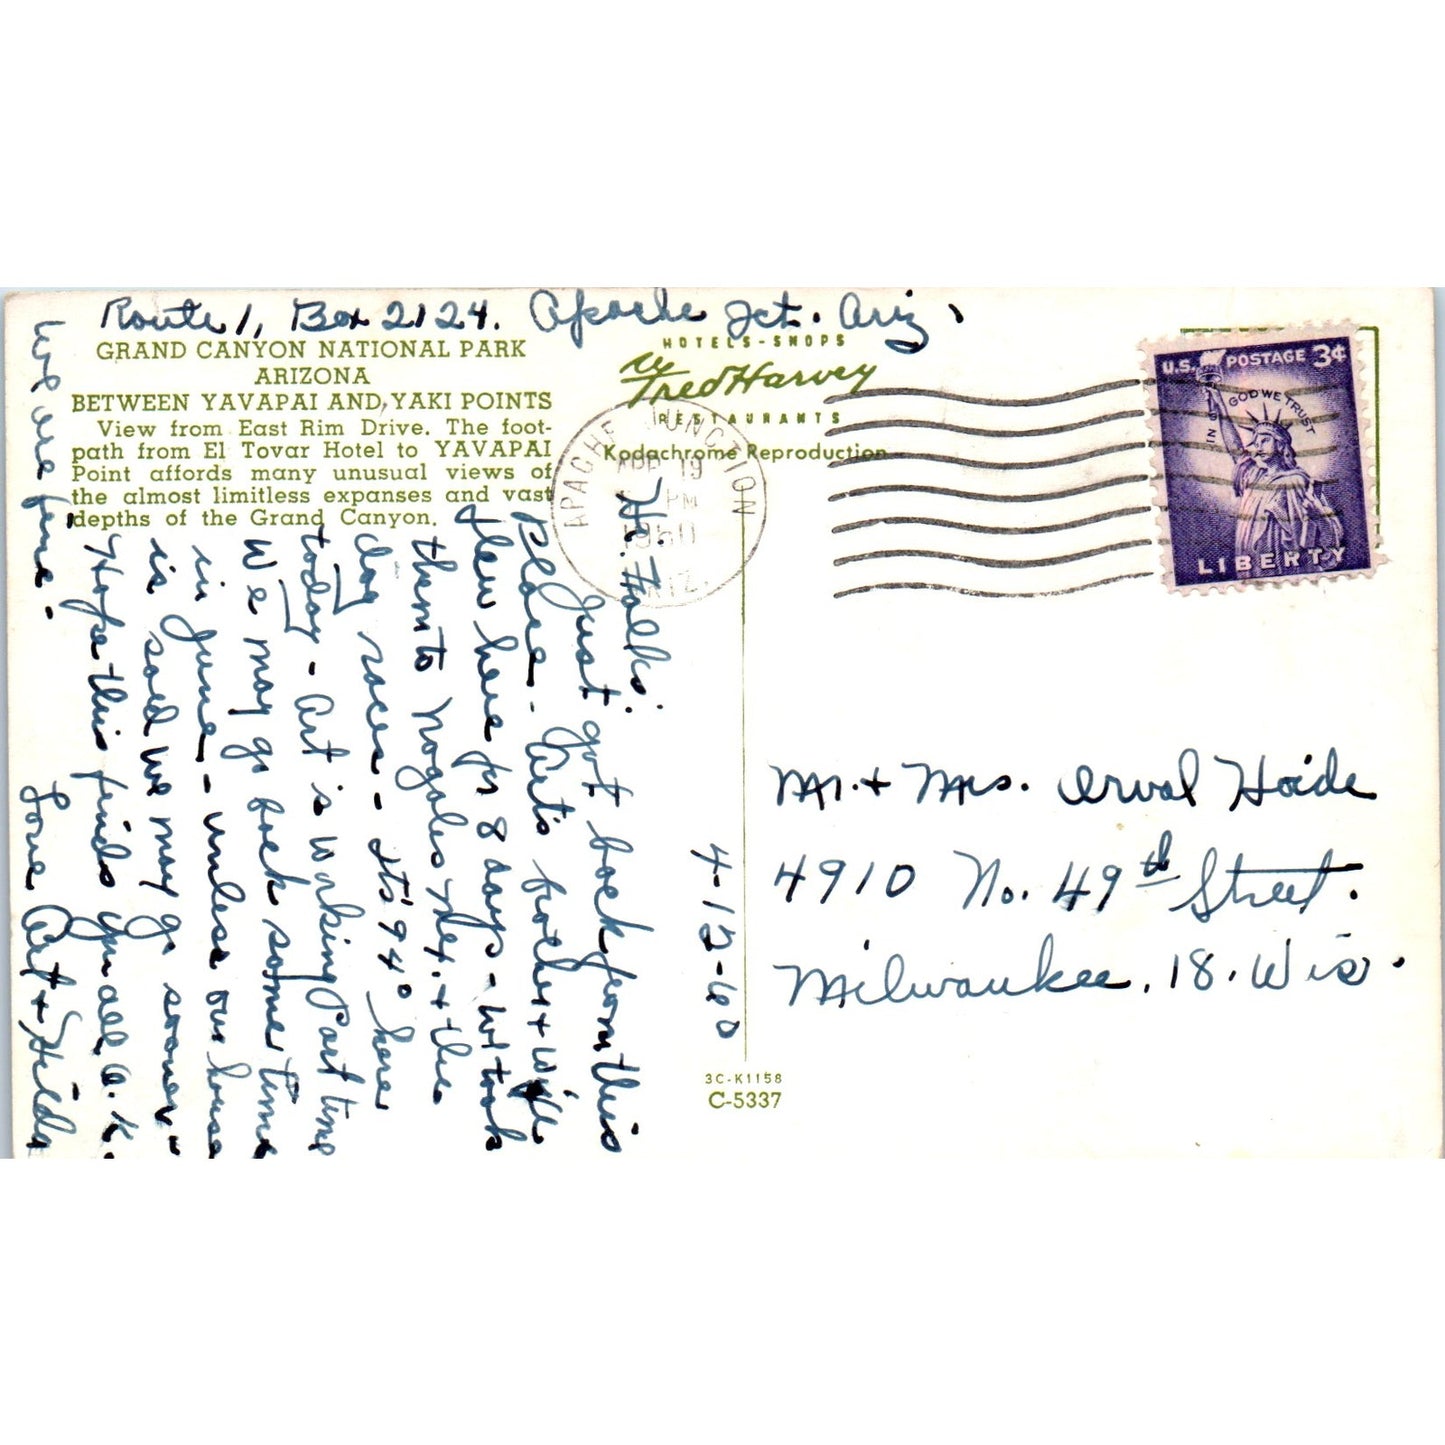 Route 1, Box 2124. Apache Jct. Ariz.
GRAND CANYON NATIONAL PARK
ARIZONA
BETWEEN YAVAPAI AND YAKI POINTS
View from East Rim Drive. The foot-
path from El Tovar Hotel to YAVAPAI
Point affords many unusual views of
the almost limitless expanses and vast
depths of the Grand Canyon.
HOTELS-SHOPS
Fred Harvey
RESTAURANTS
Kodachrome Reproduction
APACHE JUNCTION
APR 19
PM
1960
ARIZ.
U.S. POSTAGE 3¢
IN GOD WE TRUST
LIBERTY
4-12-60
Hi. Folks:
Just got back from this
place - Art's brother + wife
flew here for 8 days - We took
them to Nogales Mex. + the
dog races - It's 94° here
today - Art is working Part time
We may go back some time
in June - unless our house
is sold we may go sooner -
Hope this finds you all O.K.
We are fine -
Love Art + Hilda
Mr. + Mrs. Orval Hoide
4910 No. 49th Street.
Milwaukee, 18. Wis.
3C-K1158
C-5337